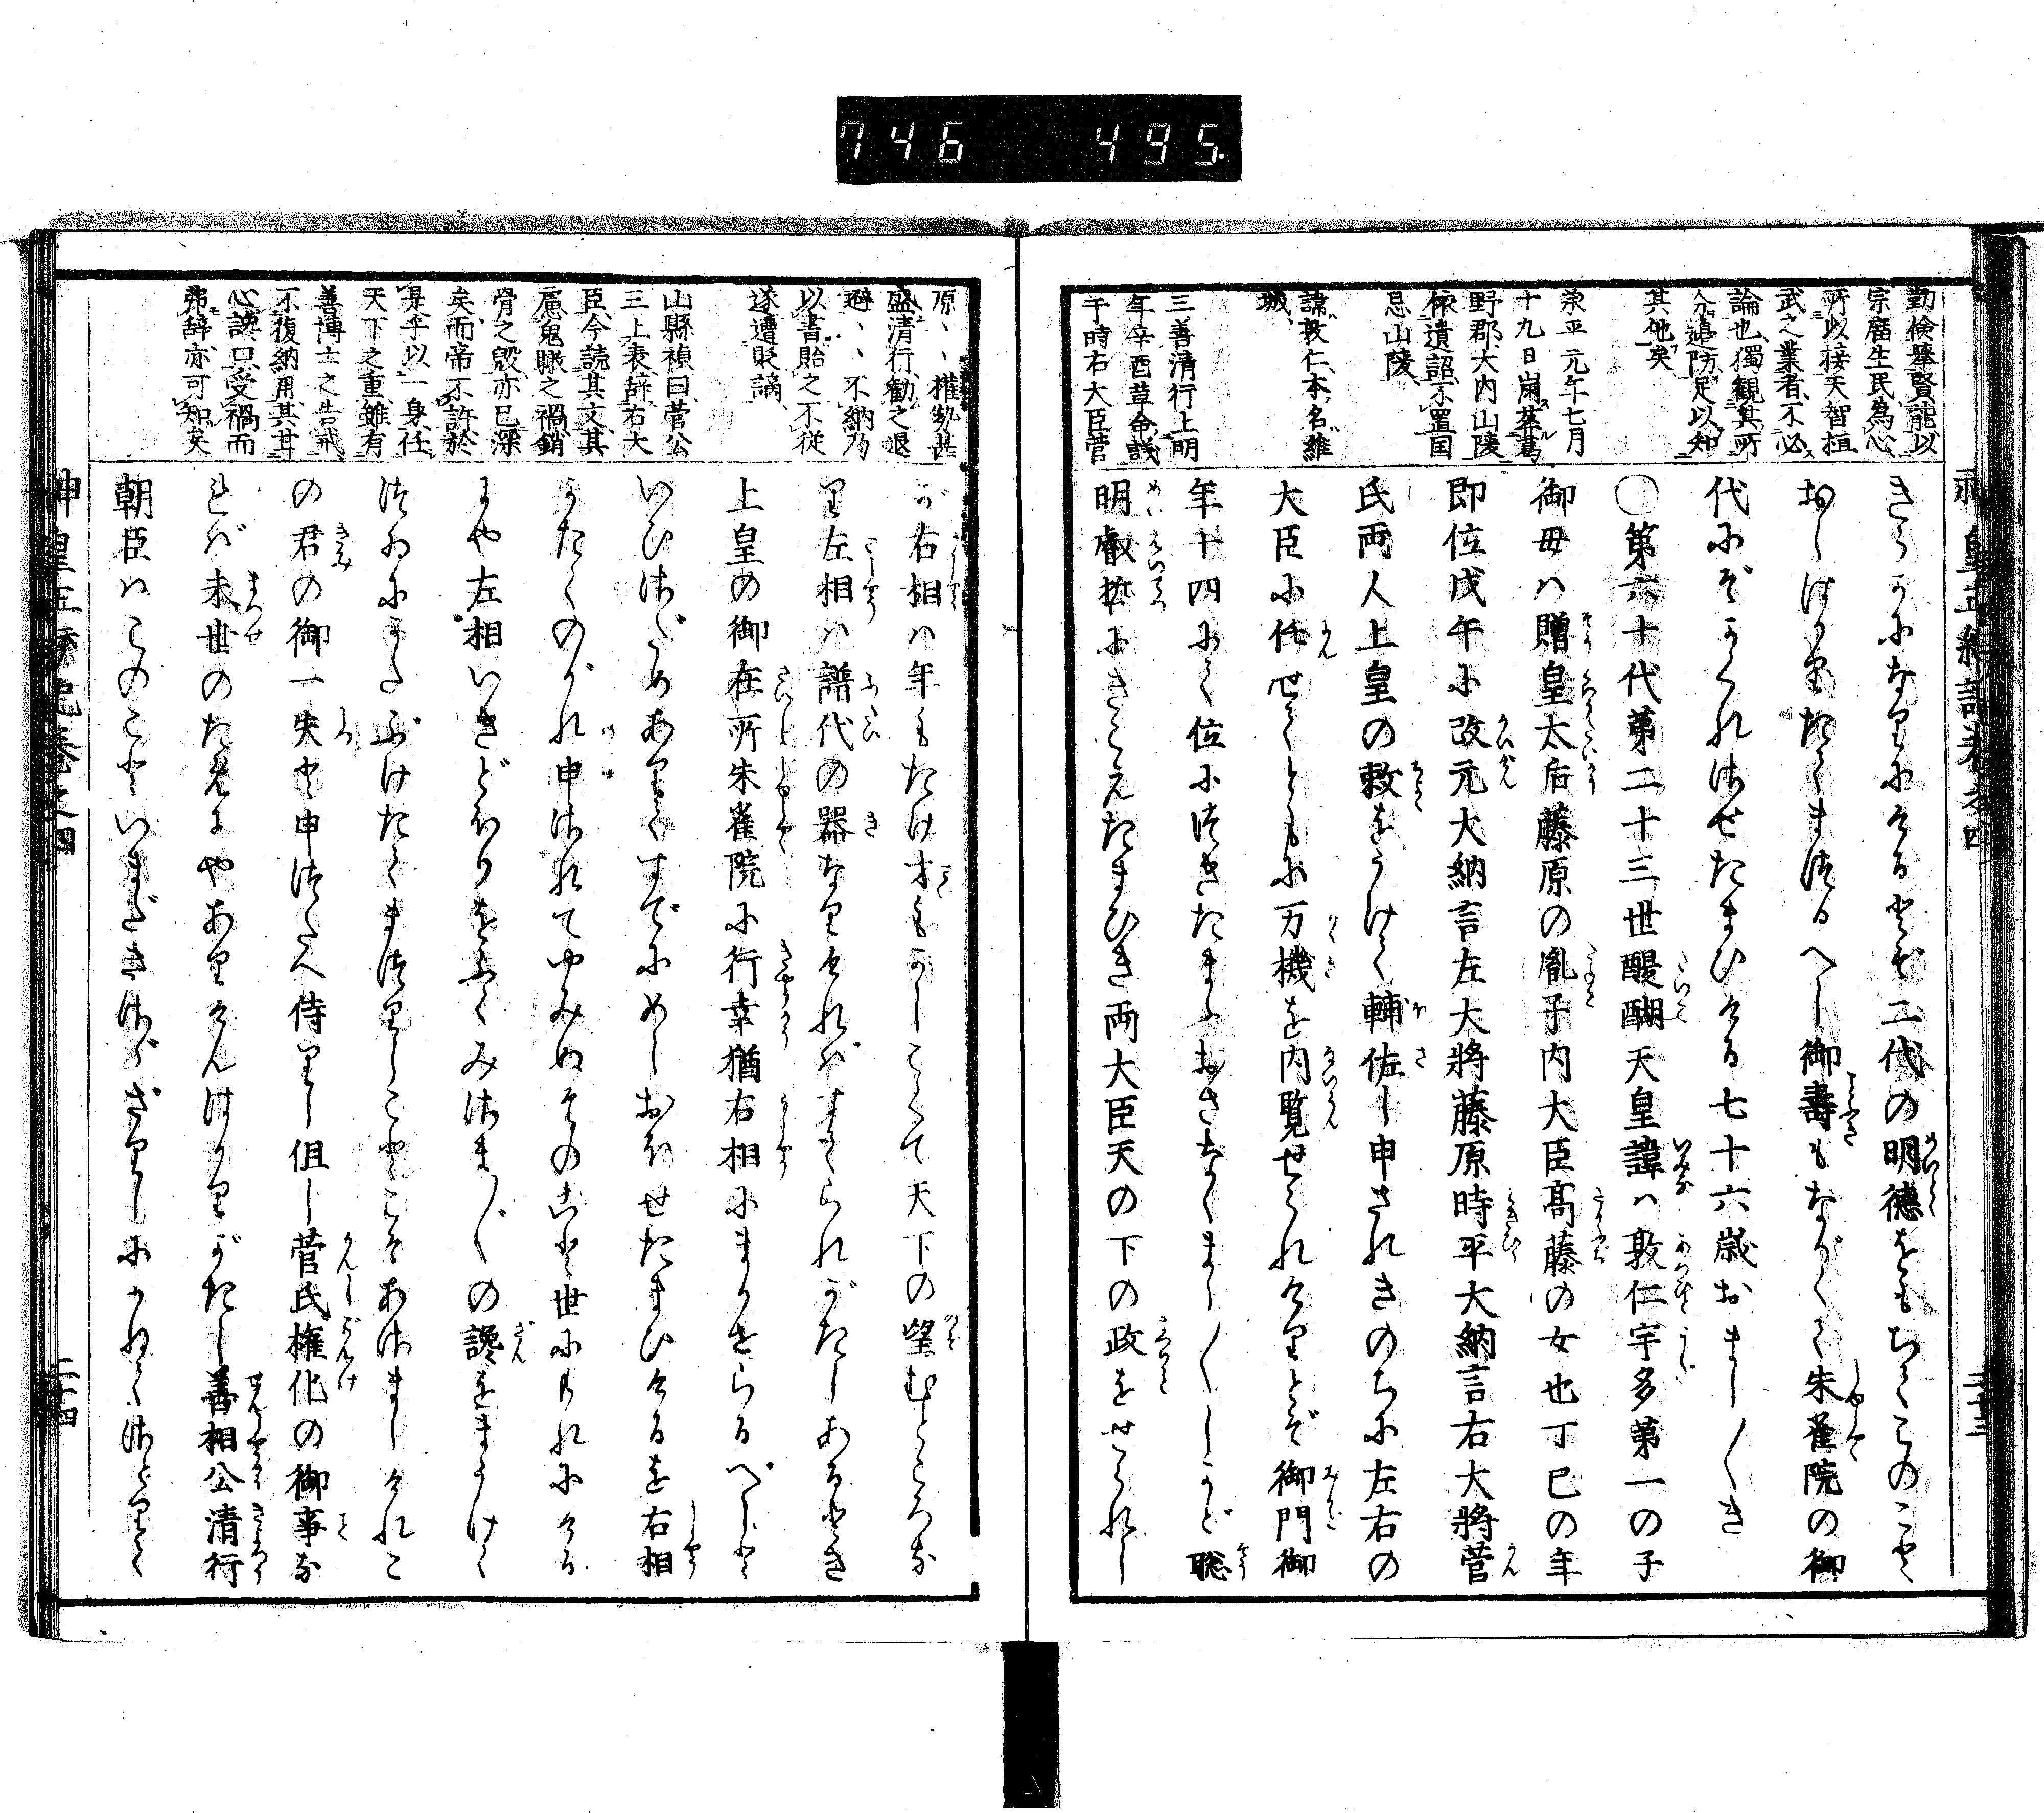 746 495.
勤倹挙賢能以
宗廟生民為心
所以接天智桓
武之業者不必
論也獨観其所
分邉防足以知
其他矣
承平元年七月
十九日崩葬葛
野郡大内山陵
依遺詔不置国
忌山陵
諱敦仁本名維
城
三善清行上明
年辛酉革命議
于時右大臣菅
神皇正統記巻之四
二十三
きらかなりけるとぞ二代の明徳をもちてこのこと
おしはかりたてまつるへし御壽もながくて朱雀院の御
代にぞかくれさせたまひける七十六歳おまし〳〵き
〇第六十代第二十三世醍醐天皇諱ハ敦仁宇多第一の子
御母ハ贈皇太后藤原の胤子内大臣髙藤の女也丁巳の年
即位戊午に改元大納言左大將藤原時平大納言右大將菅
氏両人上皇の敕をうけて輔佐し申されきのちに左右の
大臣に任せてともに万機を内覧せられけりとぞ御門御
年十四にて位につきたまふおさなくまし〳〵しかど聡
明叡哲にきこえたまひき両大臣天の下の政をせられし
原、、権勢甚
盛清行勧之退
避、、不納乃
以書貽之不従
遂遭貶謫
山縣禎曰菅公
三上表辞右大
臣今読其文其
慮鬼瞰之禍銷
骨之毀亦已深
矣而帝不許於
是乎以一身任
天下之重雖有
善博士之告戒
不復納用其甘
心讒口受禍而
弗辞亦可知矣
が右相ハ年もたけ才もかしこくて天下の望むところな
り左相ハ譜代の器なりけれバすてられがたしあるとき
上皇の御在所朱雀院に行幸猶右相にまかせらるべしと
いひさだめありてすでにめしおほせたまひけるを右相
かたくのがれ申されてやみぬそのこと世にもれにける
にや左相いきどほりをふくみさま〴〵の讒をまうけて
つゐにかたぶけたてまつりしことこそあさましけれこ
の君の御一失と申つたへ侍りし但し菅氏権化の御事な
れバ末世のためにやありけんはかりがたし善相公清行
朝臣ハこのこといまだきざゞざりしにかねてさとりて
神皇正統記巻之四
二十四